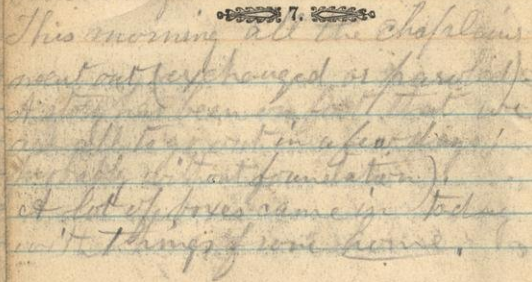 7.
This morning all the chaplains
went out (exchanged or paroled)
A story has been that we
are all to go out in a few days,
probably without foundation).
A lot of boxes came in today
with things from home.